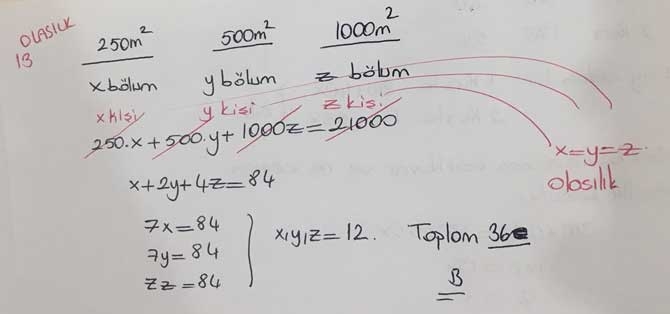 OLASILIK
13
250m² 500m² 1000m²
x bölüm y bölüm z bölüm
x kişi y kişi z kişi
250.x + 500.y + 1000z = 21000
x=y=z
olasılık
x+2y+4z=84
7x=84
7y=84
zz=84
x,y,z=12. Toplam 36
B